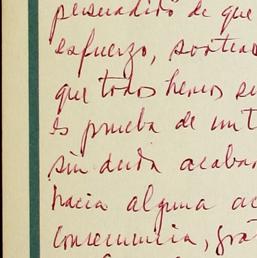 persuadido de que
esfuerzo, sorteas
que todos hemos se
es prueba de un t
sin duda acabar
hacia alguna ac
consecuencia, gra